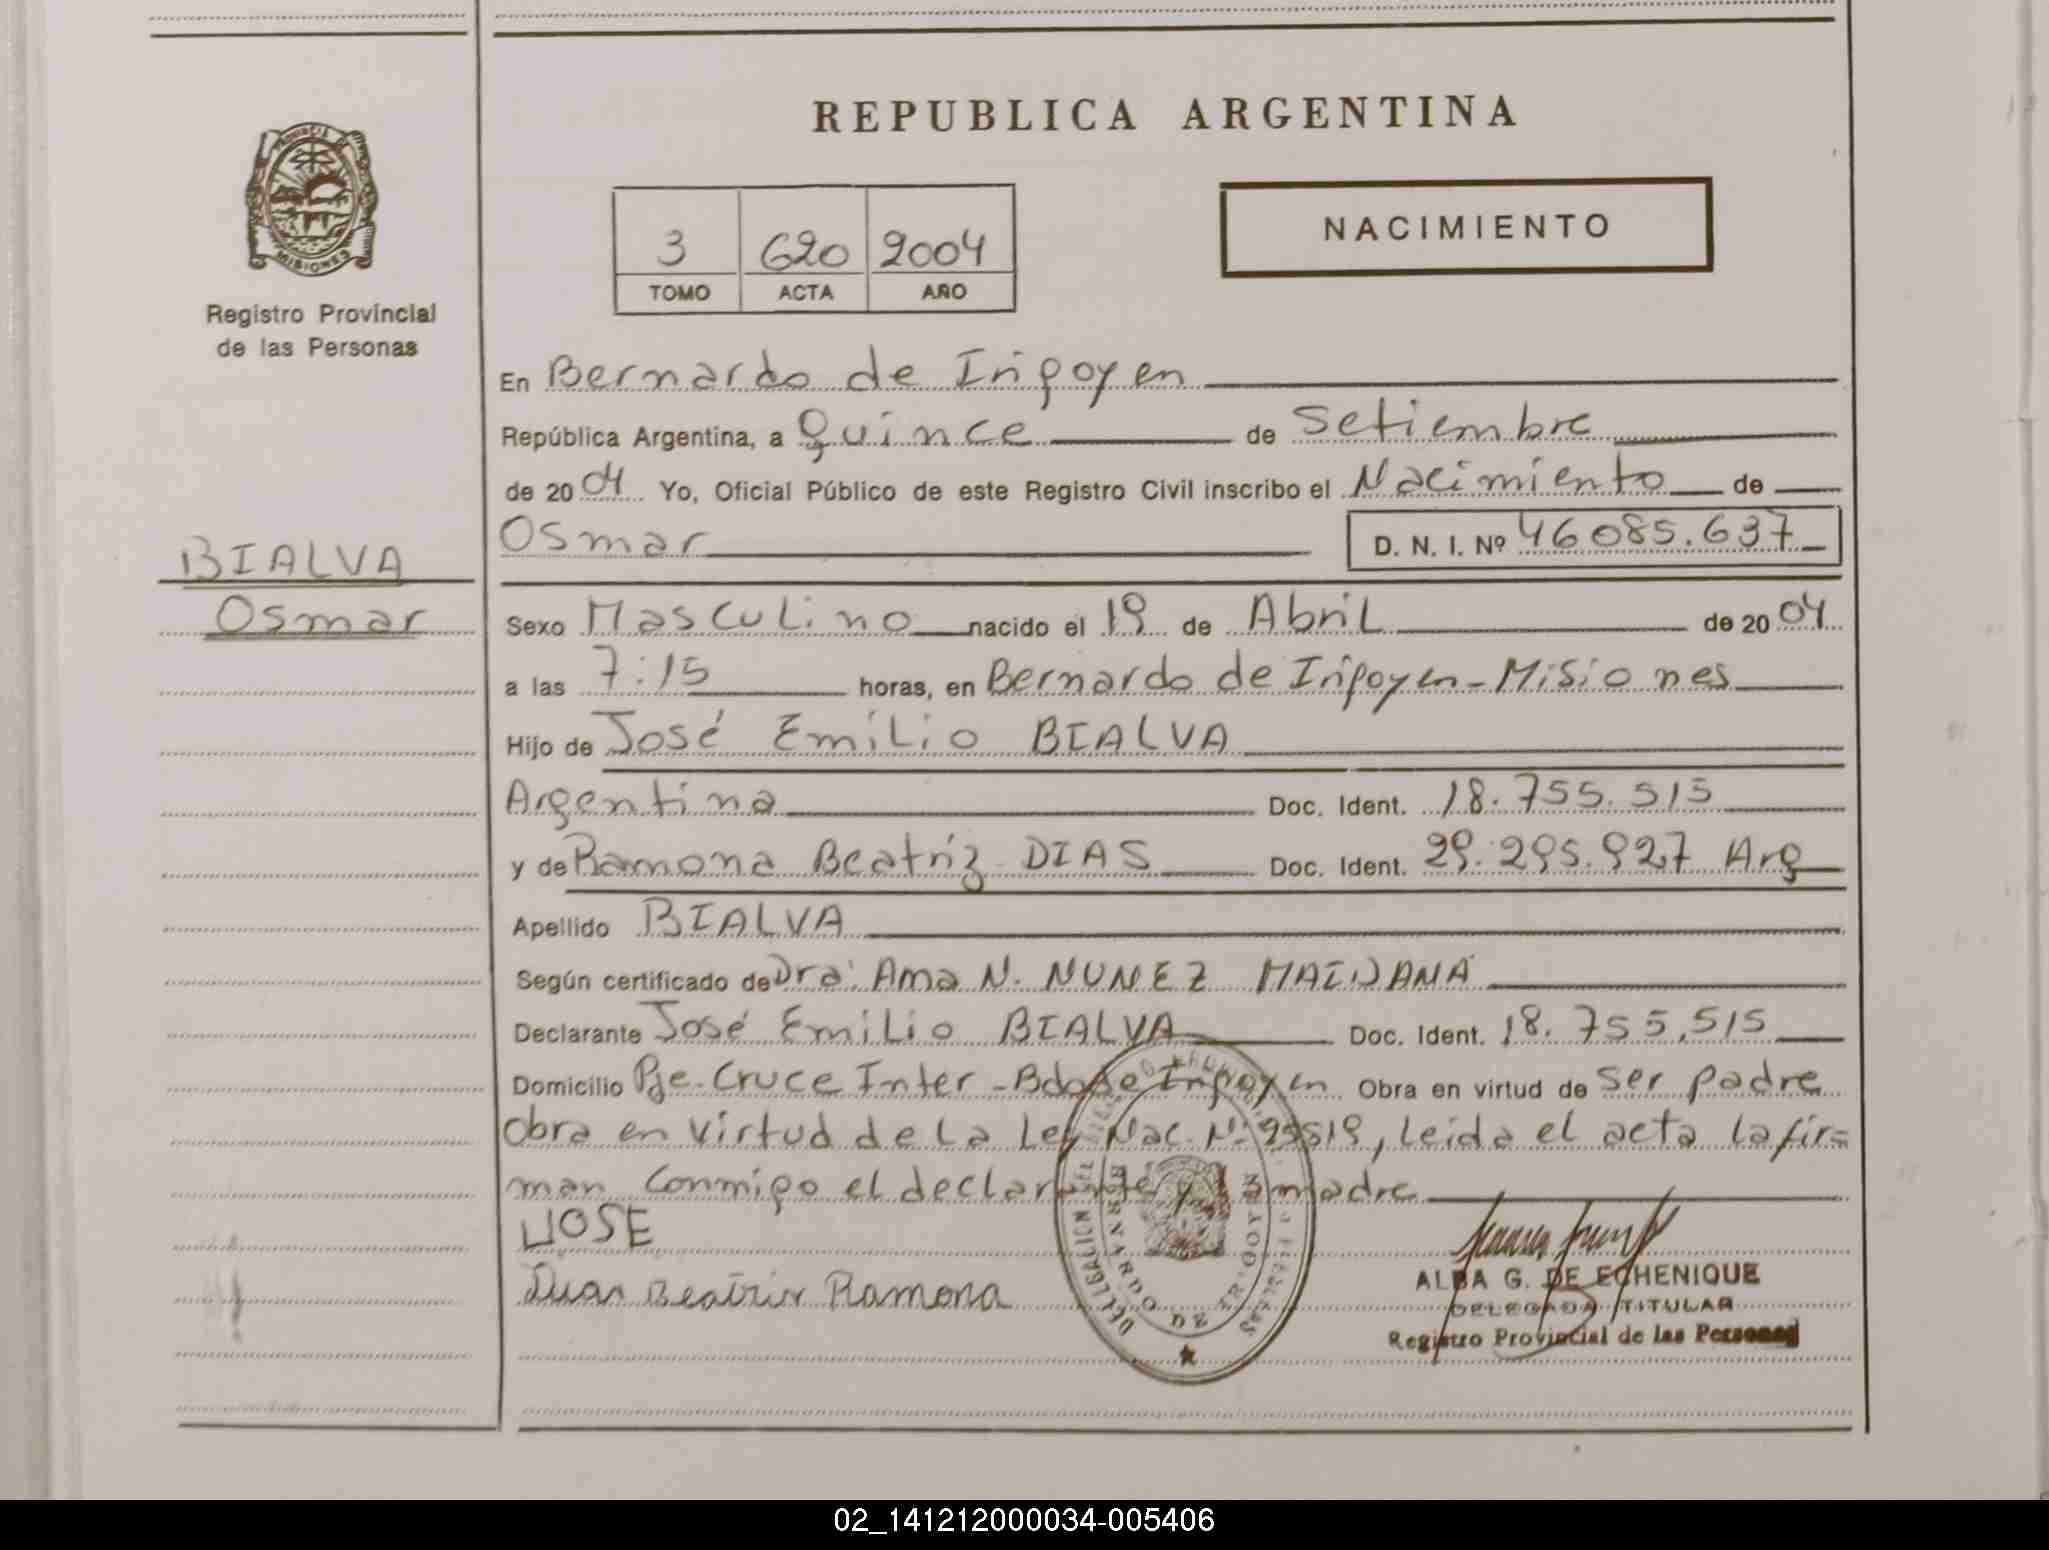 REPUBLICA ARGENTINA
PROVINCIA DE
MISIONES
Registro Provincial
de las Personas
3 620 2004
TOMO ACTA AÑO
NACIMIENTO
En Bernardo de Irigoyen
República Argentina, a Quince de Setiembre
de 2004 Yo, Oficial Público de este Registro Civil inscribo el Nacimiento de
Osmar D. N. I. Nº 46085.637
BIALVA
Osmar
Sexo Masculino nacido el 19 de Abril de 2004
a las 7:15 horas, en Bernardo de Irigoyen - Misiones
Hijo de José Emilio BIALVA
Argentina Doc. Ident. 18.755.515
y de Ramona Beatriz DIAS Doc. Ident. 29.295.927 Arg
Apellido BIALVA
Según certificado de Dra: Ana N. NUNEZ MAIDANA
Declarante José Emilio BIALVA Doc. Ident. 18.755.515
Domicilio Pje. Cruce Inter - Bdo de Irigoyen Obra en virtud de ser padre
obra en virtud de la Ley Nac. Nº, leida el acta la fir=
man conmigo el declarante y la madre
JOSE
Beatriz Ramona
BERNARDO DE IRIGOYEN
ALBA G. DE ECHENIQUE
DELEGADA TITULAR
Registro Provincial de las Personas
02_141212000034-005406